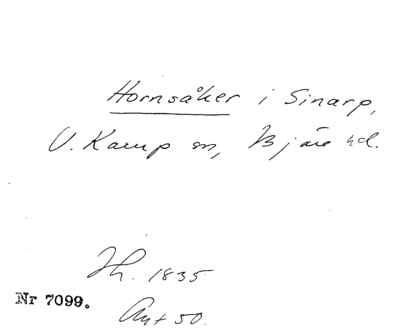 Hornsåker i Sinarp,
V. Karup sn, Bjäre hd.
Jh. 1835
Nr 7099.
Ant 50.